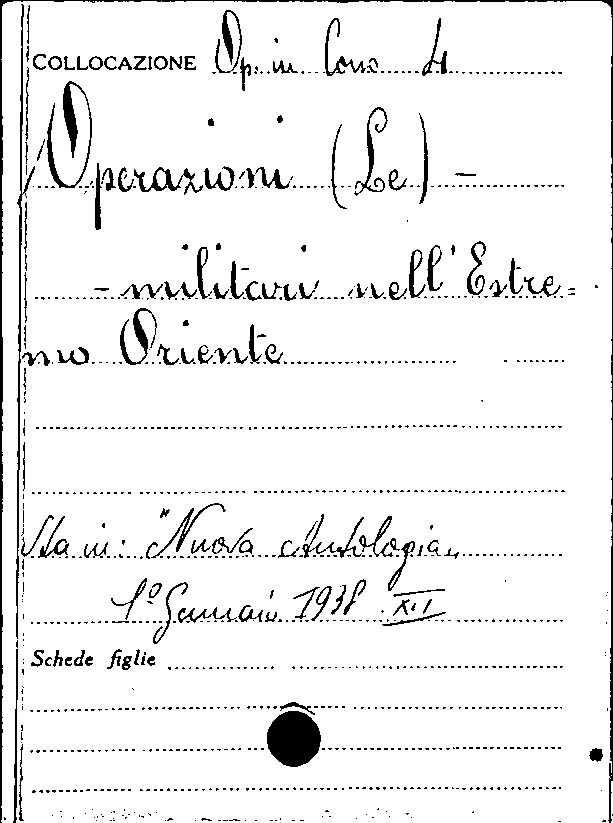 COLLOCAZIONE Op. in Cons 4
Operazioni (Le) -
- militari nell'Estre=
mo Oriente
Sta in: "Nuova Antologia„
1º Gennaio 1938 XVI
Schede figlie